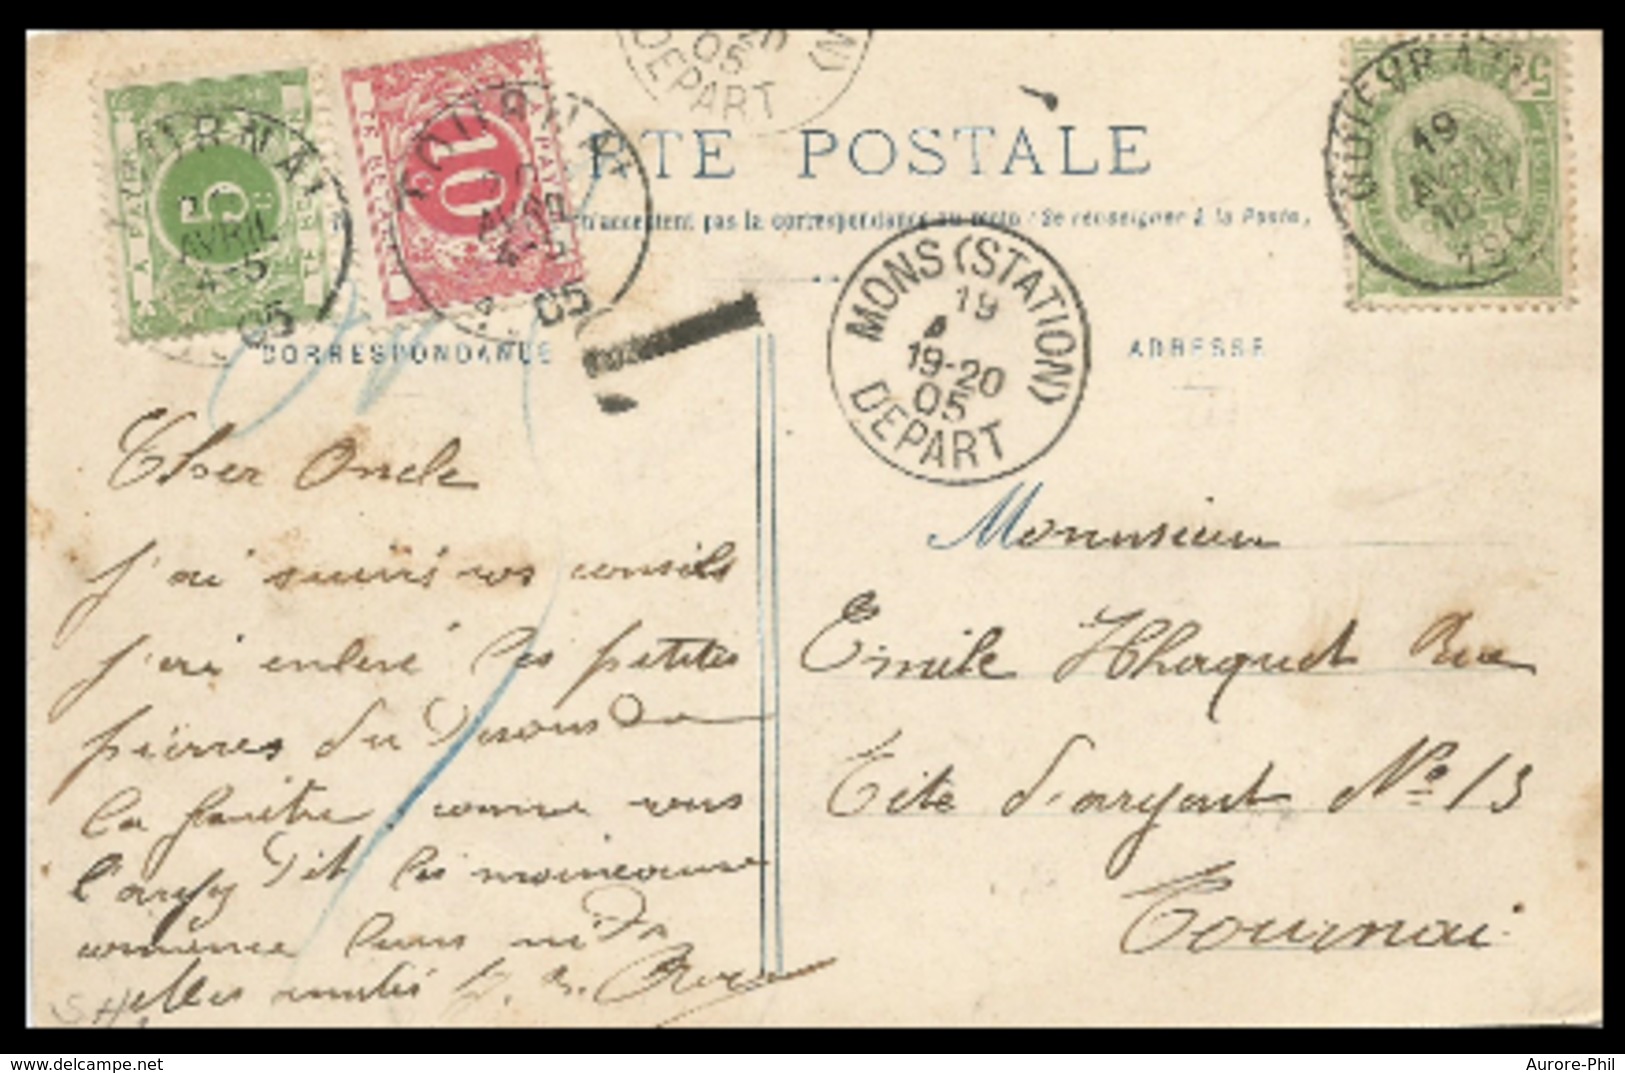 DEPART
05
(N
CARTE POSTALE
n'acceptent pas la correspondance au recto : Se renseigner à la Poste,
A PAYER
5
TE BETALEN
AVRIL
4-5
05
TOURNAI
10
c
A PAYER
TE BETALEN
05
QUIEVRAIN
19
AVRIL
5
MONS (STATION)
19
4
19-20
05
DEPART
CORRESPONDANCE
ADRESSE
Cher Oncle
j'ai suivis vos conseils
j'ai enlevé les petites
pierres du dessous de
la fenêtre comme vous
l'avez dit les moineaux
commence leurs nids
Monsieur
Emile Rue
Tête d'argent No 13
Tournai
delcampe.net
Aurore-Phil